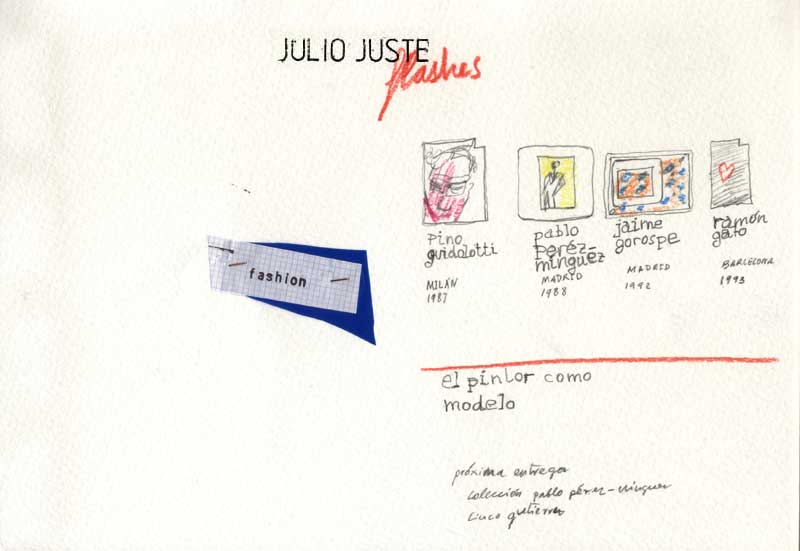 JULIO JUSTE
flashes
fashion
pino
guidolotti
MILÁN
1987
pablo
pérez-
mínguez
MADRID
1988
jaime
gorospe
MADRID
1992
ramón
gato
BARCELONA
1993
el pintor como
modelo
próxima entrega
colección pablo pérez-mínguez
gutierrez